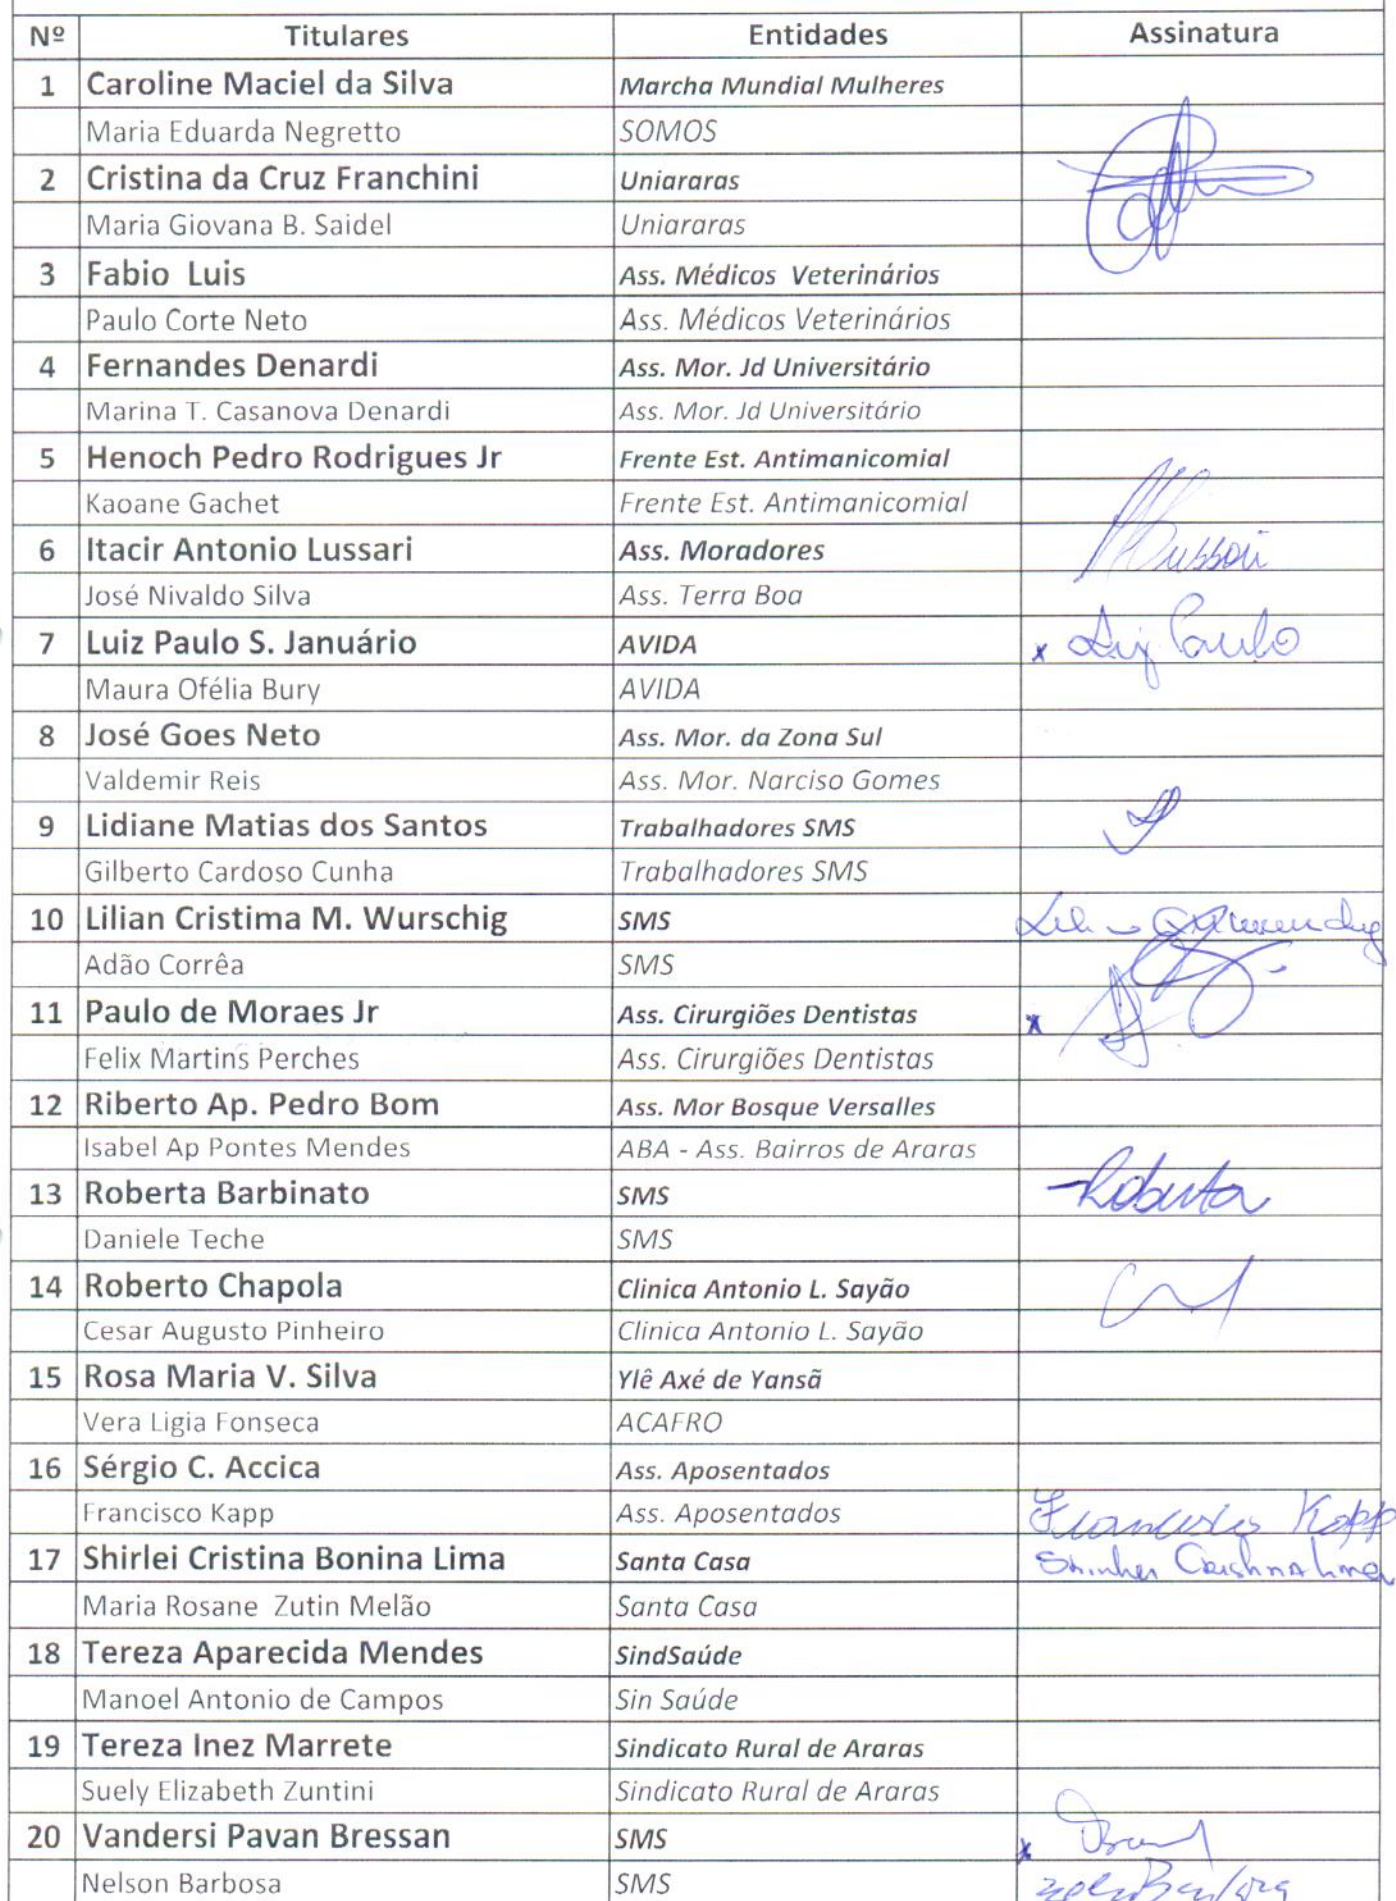 Nº Titulares Entidades Assinatura
1 Caroline Maciel da Silva Marcha Mundial Mulheres
Maria Eduarda Negretto SOMOS
2 Cristina da Cruz Franchini Uniararas
Maria Giovana B. Saidel Uniararas
3 Fabio Luis Ass. Médicos Veterinários
Paulo Corte Neto Ass. Médicos Veterinários
4 Fernandes Denardi Ass. Mor. Jd Universitário
Marina T. Casanova Denardi Ass. Mor. Jd Universitário
5 Henoch Pedro Rodrigues Jr Frente Est. Antimanicomial
Kaoane Gachet Frente Est. Antimanicomial
6 Itacir Antonio Lussari Ass. Moradores
José Nivaldo Silva Ass. Terra Boa
7 Luiz Paulo S. Januário AVIDA x Luiz Paulo
Maura Ofélia Bury AVIDA
8 José Goes Neto Ass. Mor. da Zona Sul
Valdemir Reis Ass. Mor. Narciso Gomes
9 Lidiane Matias dos Santos Trabalhadores SMS
Gilberto Cardoso Cunha Trabalhadores SMS
10 Lilian Cristima M. Wurschig SMS
Adão Corrêa SMS
11 Paulo de Moraes Jr Ass. Cirurgiões Dentistas x
Felix Martins Perches Ass. Cirurgiões Dentistas
12 Riberto Ap. Pedro Bom Ass. Mor Bosque Versalles
Isabel Ap Pontes Mendes ABA - Ass. Bairros de Araras
13 Roberta Barbinato SMS Roberta
Daniele Teche SMS
14 Roberto Chapola Clinica Antonio L. Sayão
Cesar Augusto Pinheiro Clinica Antonio L. Sayão
15 Rosa Maria V. Silva Ylê Axé de Yansã
Vera Ligia Fonseca ACAFRO
16 Sérgio C. Accica Ass. Aposentados
Francisco Kapp Ass. Aposentados Francisco Kapp
17 Shirlei Cristina Bonina Lima Santa Casa Shirlei Cristina Lima
Maria Rosane Zutin Melão Santa Casa
18 Tereza Aparecida Mendes SindSaúde
Manoel Antonio de Campos Sin Saúde
19 Tereza Inez Marrete Sindicato Rural de Araras
Suely Elizabeth Zuntini Sindicato Rural de Araras
20 Vandersi Pavan Bressan SMS x
Nelson Barbosa SMS